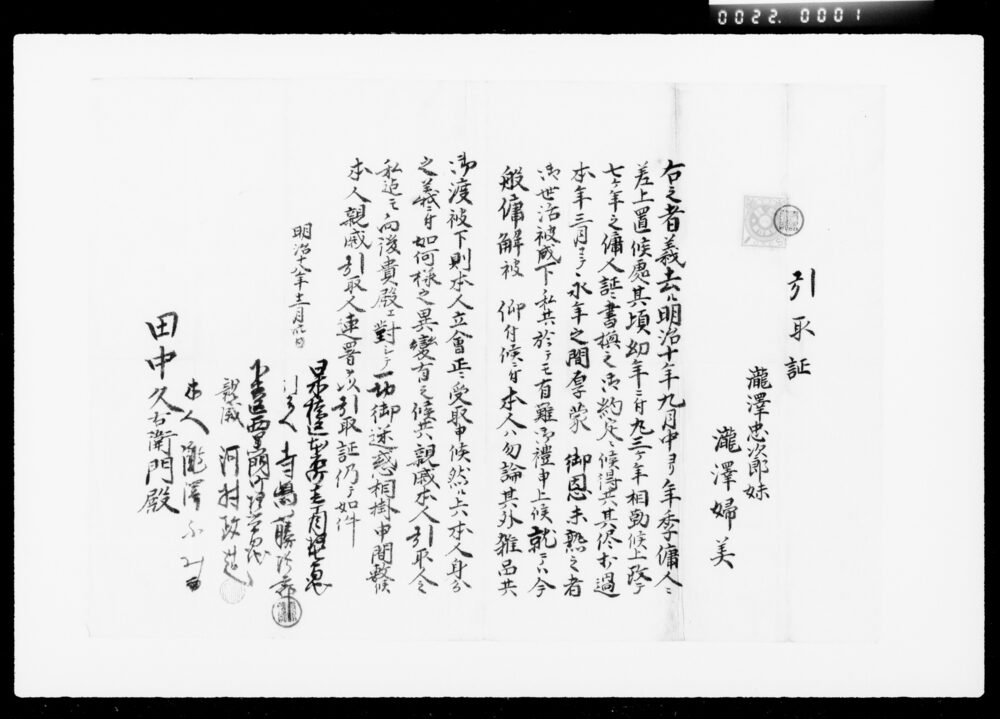 0022. 0001
引取証
瀧澤忠次郎妹
瀧澤婦美
右之者義去ル明治十年九月中ヨリ年季傭人ニ
差上置候處其頃幼年ニ付九三ヶ年相勤候上改テ
七ヶ年之傭人証書換之御約定ニ候得共其侭打過
本年三月マテ永年之間厚蒙 御恩未熟之者
御世活被成下私共於テモ有難御禮申上候就テハ今
般傭解被 仰付候ニ付本人ハ勿論其外雑品共
御渡被下則本人立會正ニ受取申候然ル上ハ本人身分
之義ニ付如何様之異變有之候共親戚本人引取人ニ
私迄モ向後貴殿エ對シテ一切御迷惑相掛申間敷候
本人親戚引取人連署ヲ以引取証仍テ如件
明治十八年十二月 日
引取人 寺島勝次郎
親戚 河村政造
本人 瀧澤ふみ
田中久右衛門殿